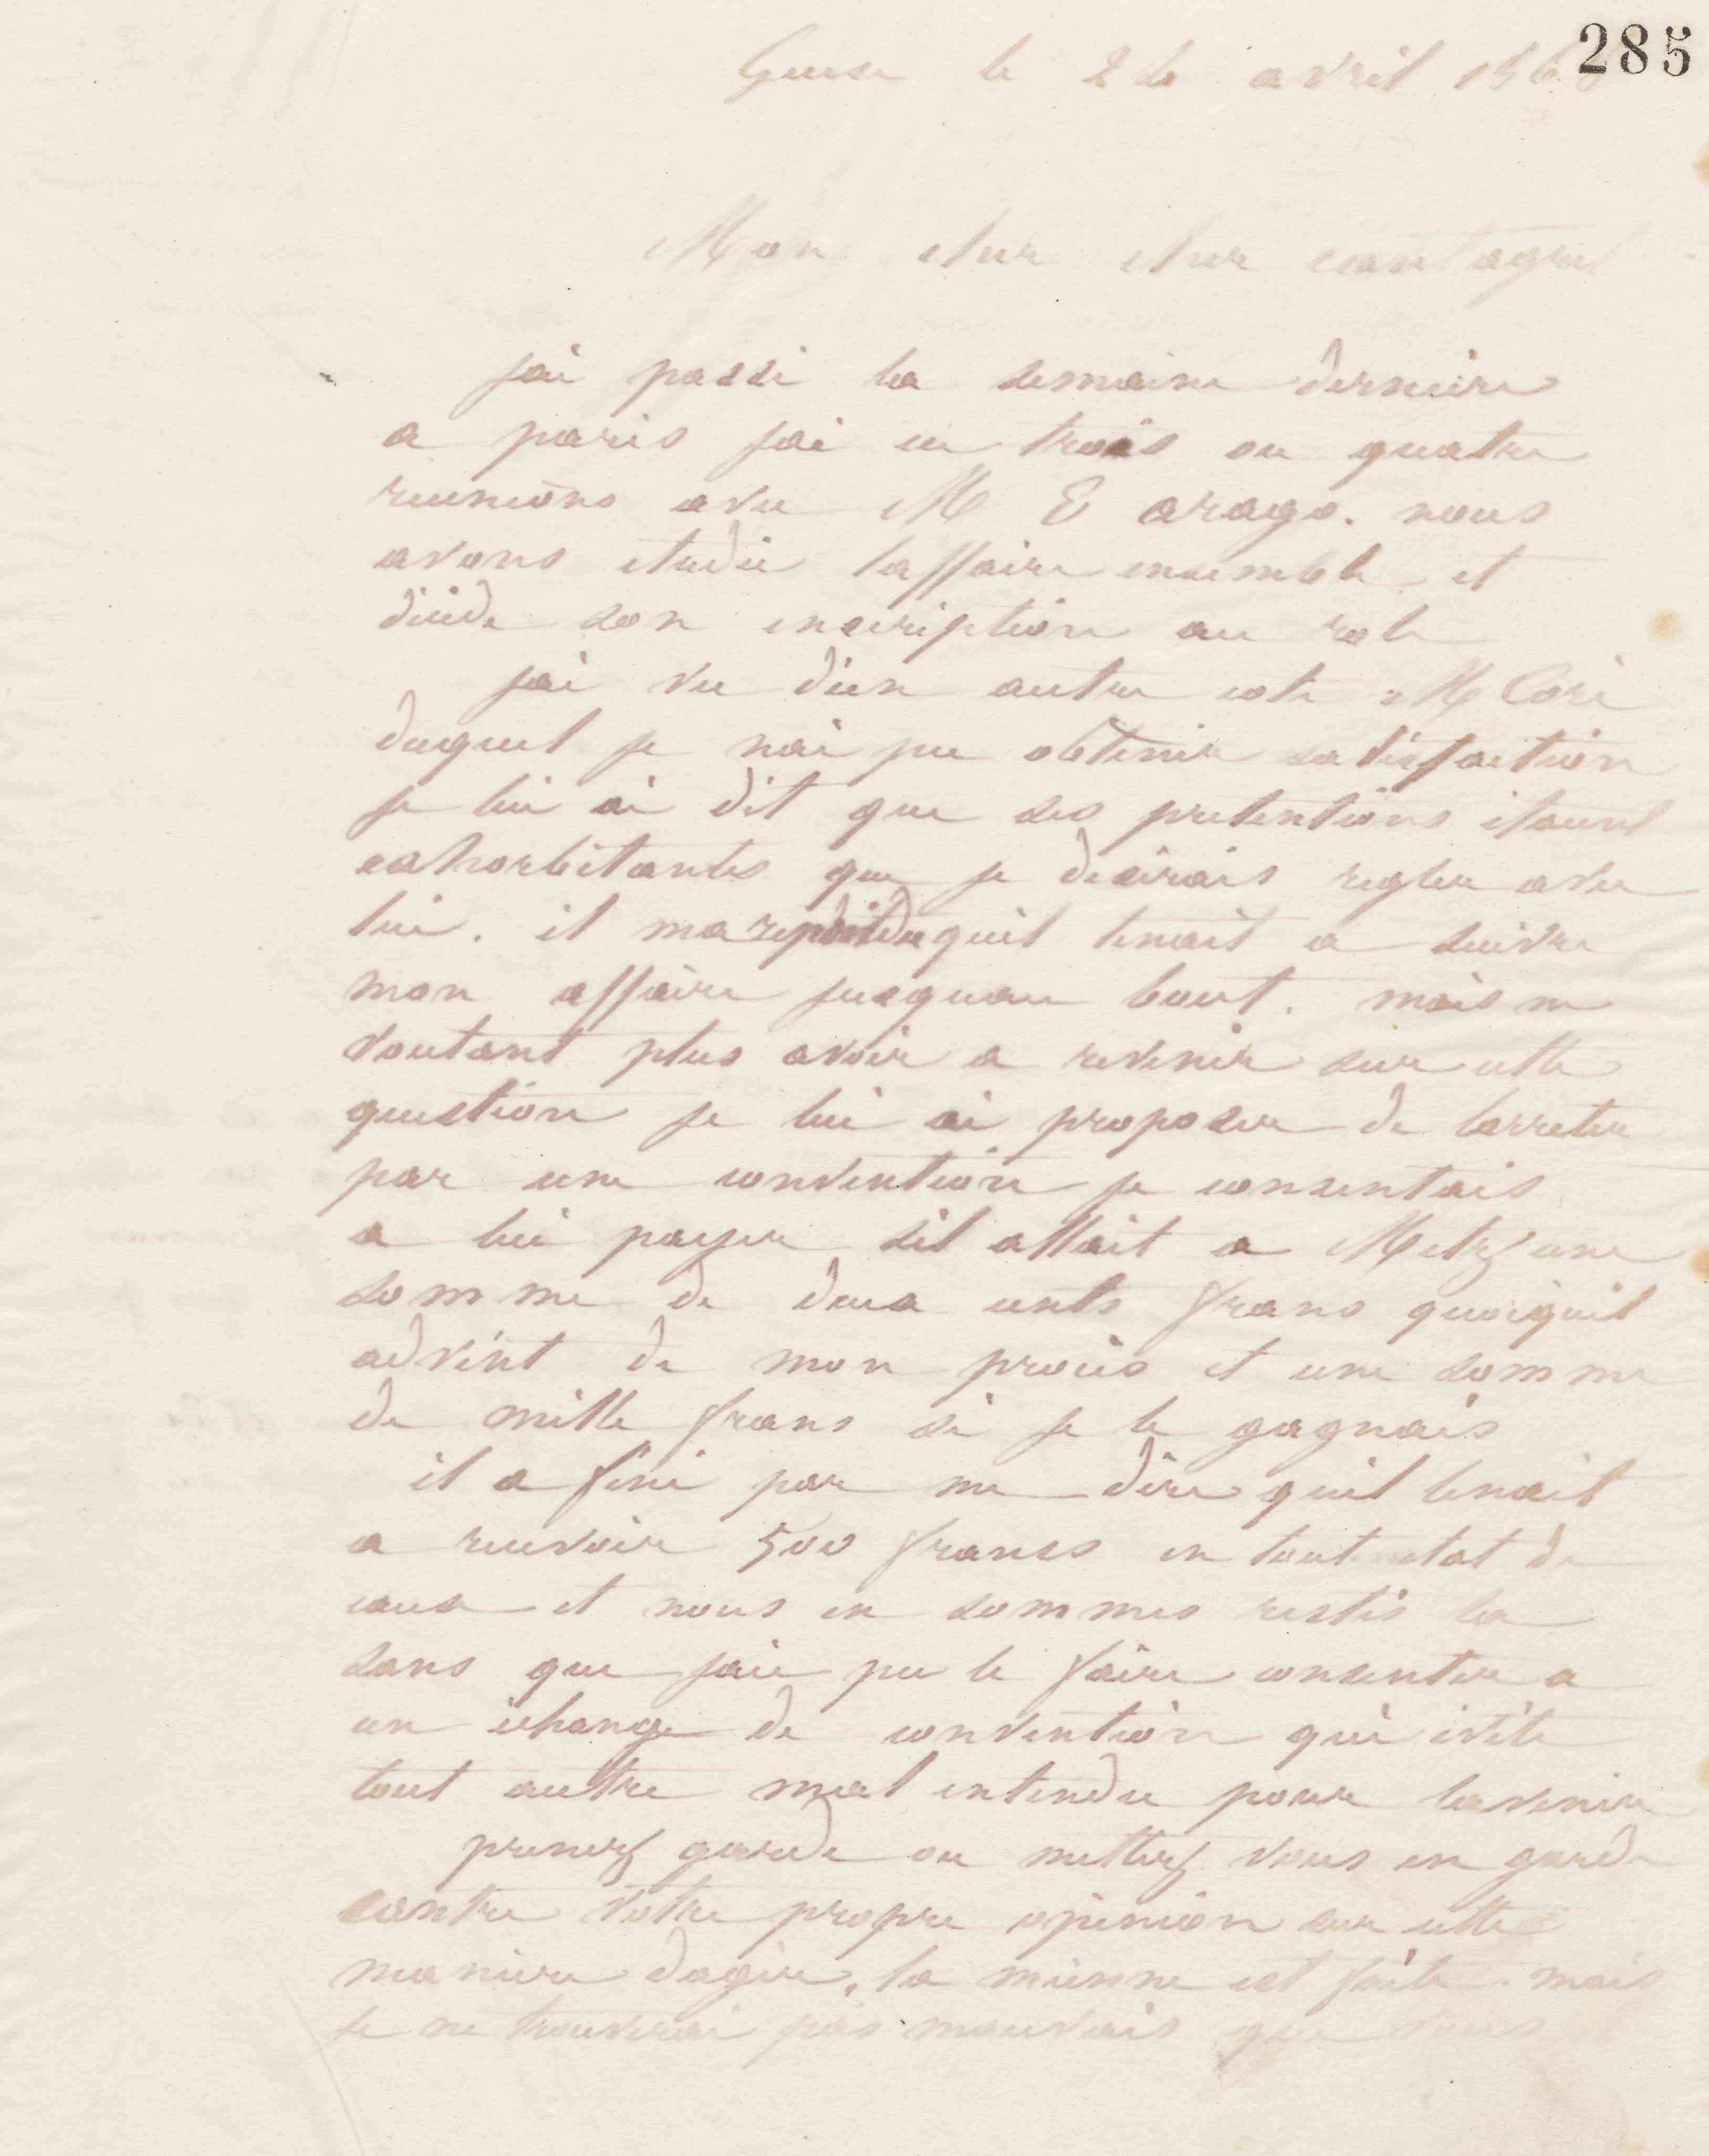 285
Guise le 26 avril 186
Mon cher cher cantagrel
jai passé la semaine derniere
a paris jai eu trois ou quatre
reunions avec M E arago. nous
avons etudié laffaire ensemble et
décidé son inscription au role
jai vu dun autre coté M Coré
duquel je nai pu obtenir satisfaction
je lui ai dit que ses pretentions étaient
exhorbitantes que je desirais regler avec
lui. il ma repondu quil tenait a suivre
mon affaire jusquau bout. mais ne
voulant plus avoir a revenir sur cette
question je lui ai proposer de larreter
par une convention je consentais
a lui payer sil allait a Metz une
somme de deux cents frans quoiquil
advint de mon procès et une somme
de mille frans si je le gagnais
il a fini par me dire quil tenait
a recevoir 500 francs en tout etat de
cause et nous en sommes restés la
sans que jaie pu le faire consentir a
un échange de convention qui évite
tout autre mal entendu pour lavenir
prenez garde ou mettez vous en garde
contre votre propre opinion sur cette
maniere dagir, la mienne est faite mais
je ne trouverai pas mauvais que vous